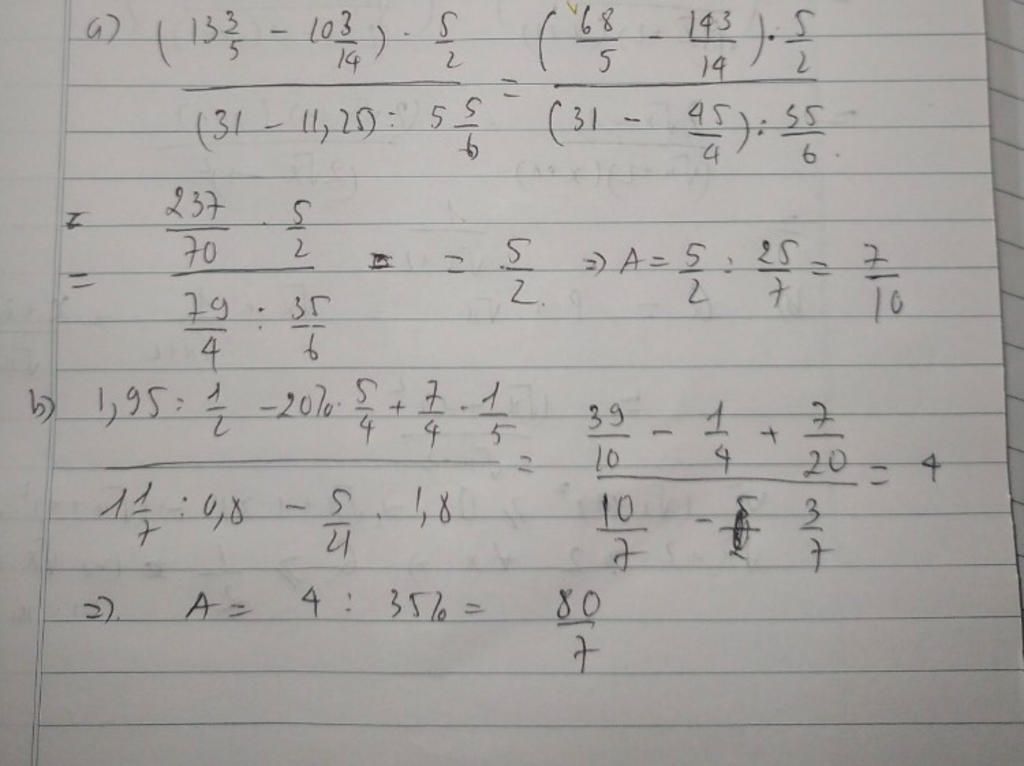 a) (13 3/5 - 10 3/14) . 5/2 / (31 - 11,25) : 5 5/6 = (68/5 - 143/14) . 5/2 / (31 - 45/4) : 35/6
= 237/70 . 5/2 / 79/4 : 35/6 = 5/2 => A = 5/2 : 25/7 = 7/10
b) 1,95 : 1/2 - 20% . 5/4 + 7/4 . 1/5 / 1 1/7 : 0,8 - 5/21 . 1,8 = 39/10 - 1/4 + 7/20 / 10/7 - 3/7 = 4
=> A = 4 : 35% = 80/7